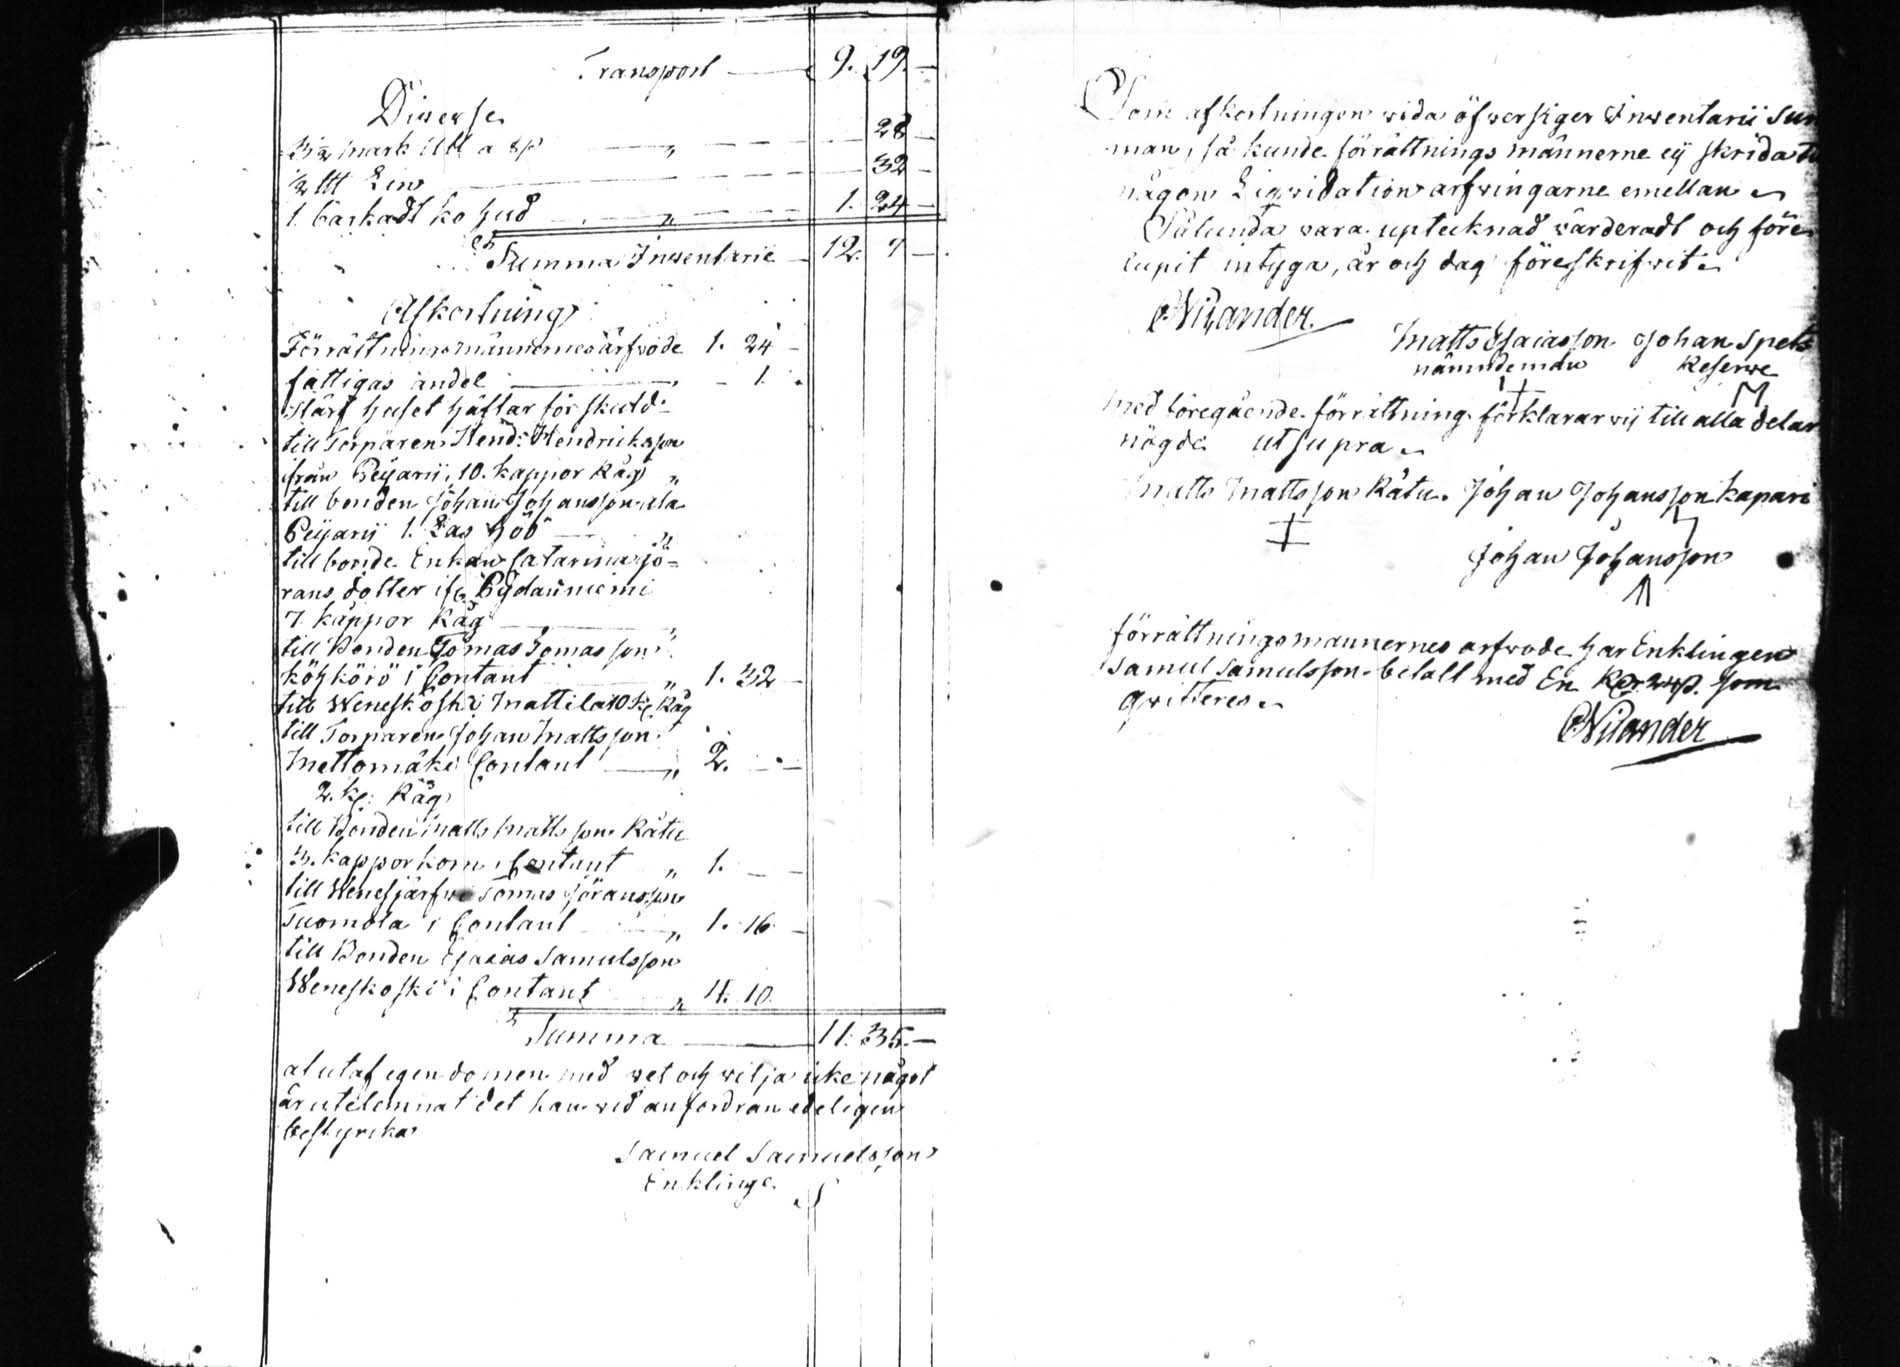 Transport 9. 19. —
Diverse
3½ mark Ull a 8 s 28 —
½ ltt Lin 32 —
1. barkadt ko hud 1. 24 —
Summa Inventarie 12. 7 —
Afkortning
Förrättningsmännernes arfvode 1. 24 —
fattigas andel — 1.
Stärf huset häftar för skuld
till Torparen Hend: Hendricksson
från Peijarij, 10. kappor Råg
till bonden Johan Johansson
Peijarij 1. Las höö
till bonde Enkan Catarina Jö=
rans dotter
7. kappor Råg
till Bonden Tomas Tomasson
köhkörö i Contant 1. 32 —
till Weneskoski Mattila 10 k: Råg
till Torparen Johan Mattsson
Mettomäki Contant 2. — —
2. k: Råg
till Bonden Matts Mattsson Rätu
3. kappor korn, Contant 1. — —
till Wenesjärfvi Tomas Göransson
Tuomola i Contant 1. 16 —
till Bonden Esaias Samulsson
Weneskoski i Contant 4. 10.
Summa 11. 35. —
at utaf egendomen med vet och vilja icke något
är utelemnat det han vid anfordran edeligen
bestyrka
Samuel Samuelsson
Enklinge
S
Som afkortningen vida öfverstiger Inventarii Sum
man, så kunde förrättnings männerne eij skrida
någon Liqvidation arfvingarne emellan
Sålunda vara uptecknad värderadt och före
lupit intyga, år och dag föreskrifvit
Nilander.
Matts Esaiasson Johan Spets
nämndeman Reserve
Med föregående förrättning förklarar vij till alla delar
nögde ut supra
Matts Mattsson Rätu. Johan Johansson kapari
Johan Johansson
förrättningsmannernes arfvode har Enklingen
Samul Samulsson betalt med En R. 24 s. som
qvitteres
Nilander